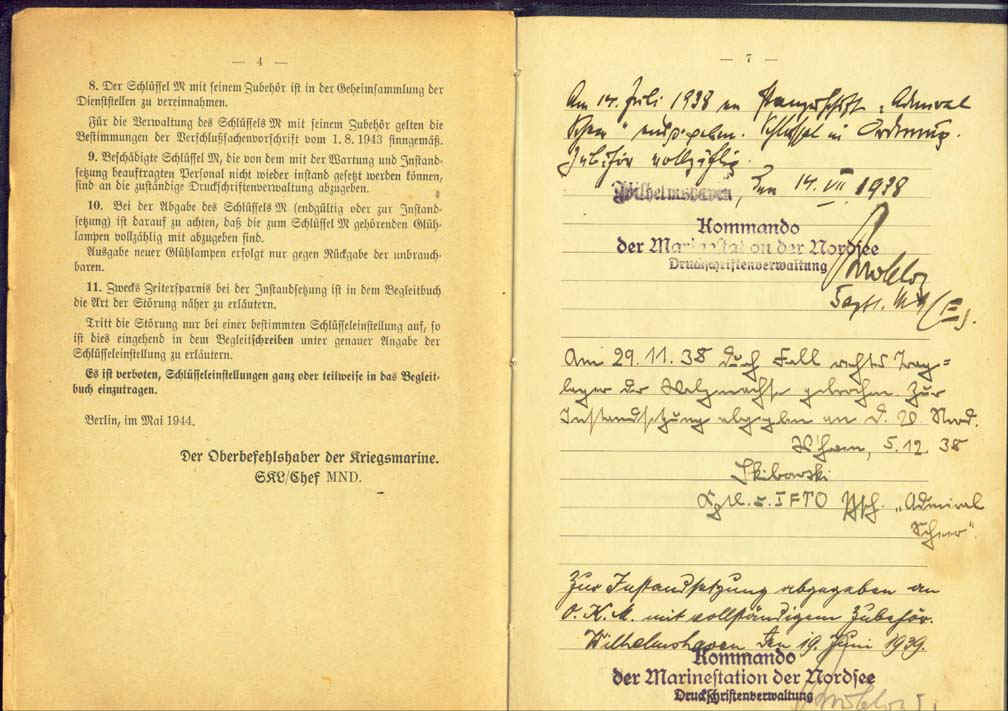 — 4 —
8. Der Schlüssel M mit seinem Zubehör ist in der Geheimsammlung der
Dienststellen zu vereinnahmen.
Für die Verwaltung des Schlüssels M mit seinem Zubehör gelten die
Bestimmungen der Verschlußsachenvorschrift vom 1. 8. 1943 sinngemäß.
9. Beschädigte Schlüssel M, die von dem mit der Wartung und Instand-
setzung beauftragten Personal nicht wieder instand gesetzt werden können,
sind an die zuständige Druckschriftenverwaltung abzugeben.
10. Bei der Abgabe des Schlüssels M (endgültig oder zur Instand-
setzung) ist darauf zu achten, daß die zum Schlüssel M gehörenden Glüh-
lampen vollzählig mit abzugeben sind.
Ausgabe neuer Glühlampen erfolgt nur gegen Rückgabe der unbrauch-
baren.
11. Zwecks Zeitersparnis bei der Instandsetzung ist in dem Begleitbuch
die Art der Störung näher zu erläutern.
Tritt die Störung nur bei einer bestimmten Schlüsseleinstellung auf, so
ist dies eingehend in dem Begleitschreiben unter genauer Angabe der
Schlüsseleinstellung zu erläutern.
Es ist verboten, Schlüsseleinstellungen ganz oder teilweise in das Begleit-
buch einzutragen.
Berlin, im Mai 1944.
Der Oberbefehlshaber der Kriegsmarine.
SKL/Chef MND.
— 7 —
Am 14. Juli 1938 an Panzerschiff „Admiral
Scheer" ausgegeben. Schlüssel in Ordnung.
Zubehör vollzählig.
Wilhelmshaven, den 14. VII. 1938
Kommando
der Marinestation der Nordsee
Druckschriftenverwaltung
Am 29. 11. 38 durch Fall rechts Trag=
lager der Walzenachse gebrochen. Zur
Instandsetzung abgegeben an D. V. Nord.
W'haven, 5. 12. 38
Skibowski
u. IFTO Psch. „Admiral
Scheer".
Zur Instandsetzung abgegeben an
O. K. M. mit vollständigem Zubehör.
Wilhelmshaven den 19. Juni 1939.
Kommando
der Marinestation der Nordsee
Druckschriftenverwaltung